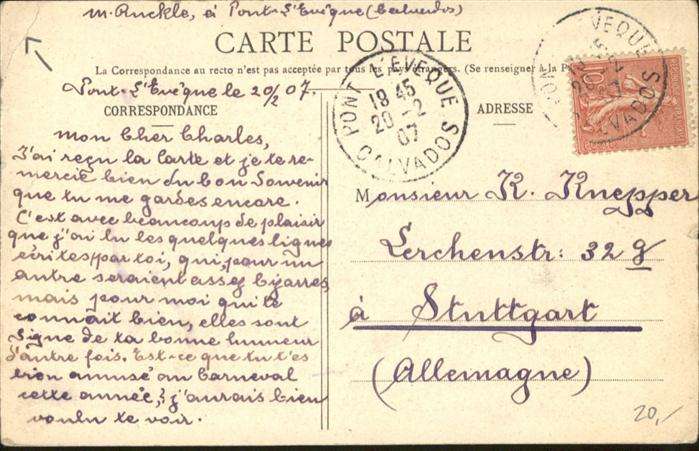 M. Ruckle, à Pont-l'Evêque (Calvados)
CARTE POSTALE
La Correspondance au recto n'est pas acceptée par tous les pays étrangers. (Se renseigner à la P
Pont-l'Evêque le 20/2 07.
CORRESPONDANCE
ADRESSE
PONT L'EVEQUE
18 45
20 -2
07
CALVADOS
EVEQUE
CALVADOS
Mon Cher Charles,
J'ai reçu la Carte et je te re-
mercie bien du bon Souvenir
que tu me gardes encore.
C'est avec beaucoup de plaisir
que j'ai lu les quelques lignes
écrites par toi, qui, pour un
autre seraient assez bizarres,
mais pour moi qui te
connait bien, elles sont
Signe de ta bonne humeur
d'autre fois. Est-ce que tu t'es
bien amusé au Carneval
cette année,? j'aurais bien
voulu te voir.
Monsieur K. Knepper
Lerchenstr: 32 g
à Stuttgart
(Allemagne)
20,-